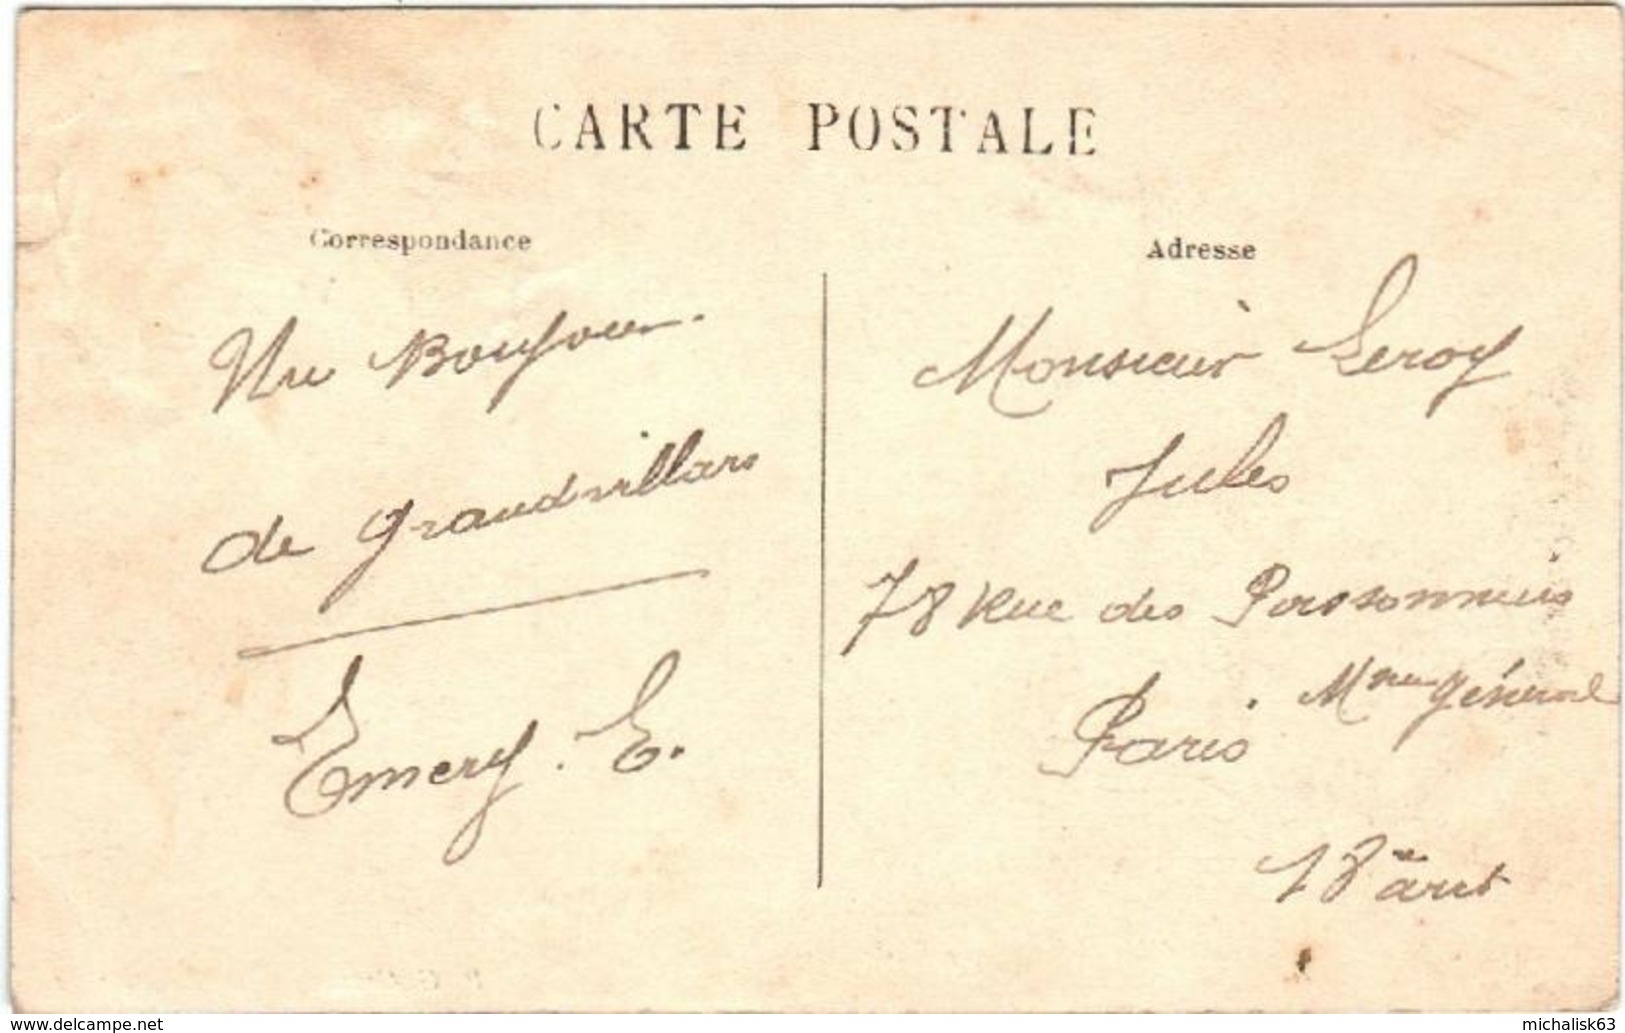 CARTE POSTALE
Correspondance
Un Bonjour
de Grandvillars
Emery. E.
Adresse
Monsieur Leroy
Jules
78 Rue des Poissonniers
Paris. Mme Général
18me arrt
www.delcampe.net
michalisk63